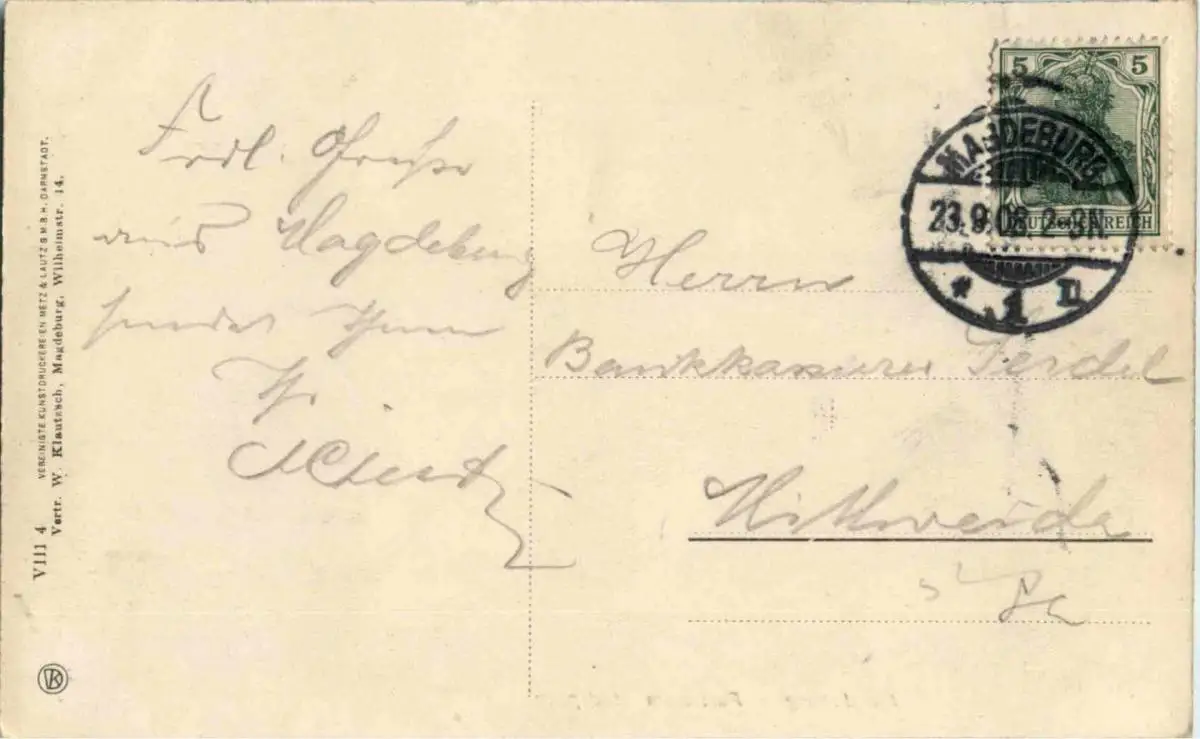 VIII 4 VEREINIGTE KUNSTDRUCKEREIEN METZ & LAUTZ G.M.B.H. DARMSTADT.
Vertr. W. Klautzsch, Magdeburg, Wilhelmstr. 14.
Frdl. Grüße
aus Magdeburg
sendet Ihnen
5 5
DEUTSCHES REICH
MAGDEBURG
23.9.08. 2-3N.
* 1 II
Herrn
Bankkassierer
Mittweida